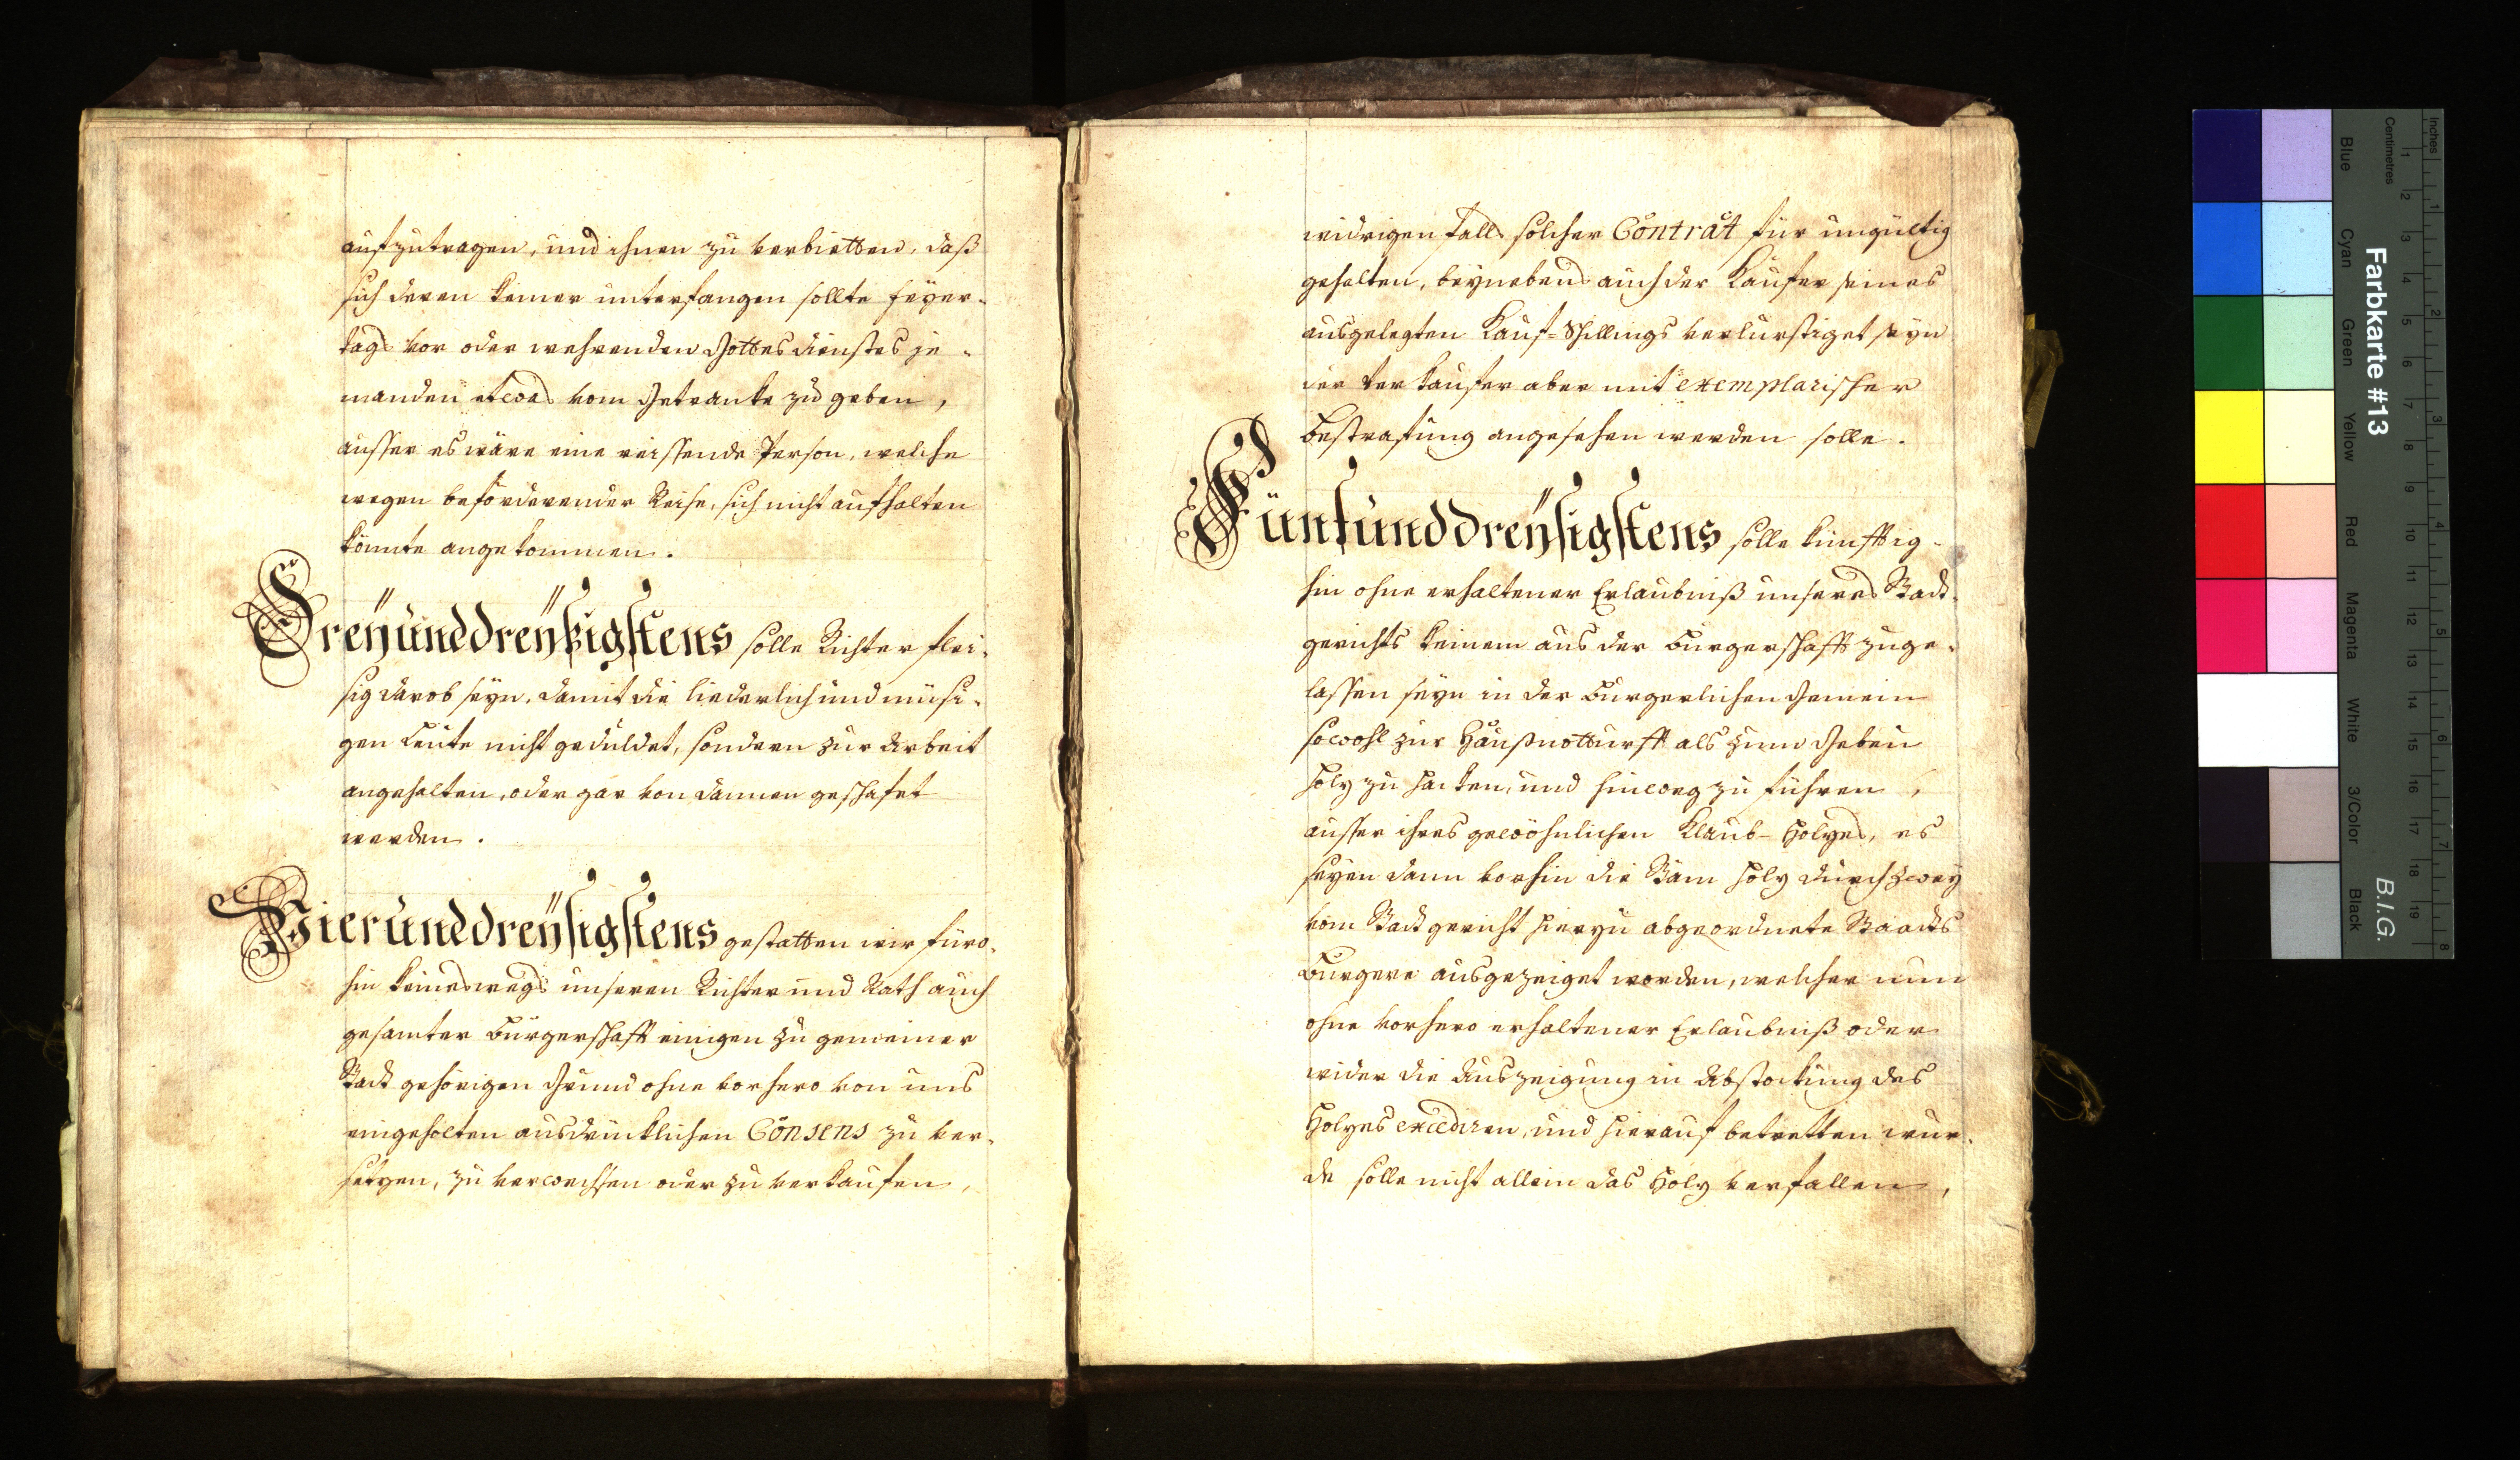 aufzutragen, und ihnen zu verbietten, daß
sich deren keiner unterfangen sollte feyer-
tags vor oder wehrenden Gottesdienstes je-
manden etwas vom Getranke zu geben,
ausser es wäre eine reissende Person, welche
wegen beförderender Reise, sich nicht aufhalten
könnte angekommen.
Dreÿunddreÿßigstens solle Richter flei-
sig darob seyn, damit die liederlich und müsi-
gen Leute nicht geduldet, sondern zur Arbeit
angehalten, oder gar von dannen geschafet
werden.
Vierunddreÿsigstens gestatten wir füro-
hin keineswegs unseren Richter und Rath auch
gesamter Burgerschafft einigen zu gemeiner
Stadt gehörigen Grund ohne vorhero von uns
eingeholten ausdrucklichen Consens zu ver-
setzen, zu verwechslen oder zu verkaufen,
widrigen falls solcher Contract für ungültig
gehalten, beynebens auch der Kaufer seines
ausgelegten Kauf-Schillings verlurstiget seyn
der Verkaufer aber mit exemplarischer
Bestrafung angesehen werden solle.
Fünfunddreÿsigstens solle künfftig-
hin ohne erhaltener Erlaubniß unseres Stadt-
gerichts keinem aus der Burgerschafft zuge-
lassen seyn in der Burgerlichen Gemein
sowohl zur Haußnotturfft als zum Gebeu
Holz zu hacken, und hinweg zu führen,
ausser ihres gewöhnlichen Klaub-Holzes, es
seyen dann vorhin die Stäm Holz durch zwey
vom Stadtgericht hierzu abgeordnete Staadts
Burgere ausgezeiget worden, welcher nun
ohne vorhero erhaltener Erlaubniß oder
wider die Auszeigung in Abstockung des
Holzes excediren, und hierauf betretten wur-
de solle nicht allein das Holz verfallen,
Farbkarte #13
B.I.G.
Inches
Centimetres
Blue
Cyan
Green
Yellow
Red
Magenta
White
3/Color
Black
1 2 3 4 5 6 7 8 9 10 11 12 13 14 15 16 17 18 19
1 2 3 4 5 6 7 8